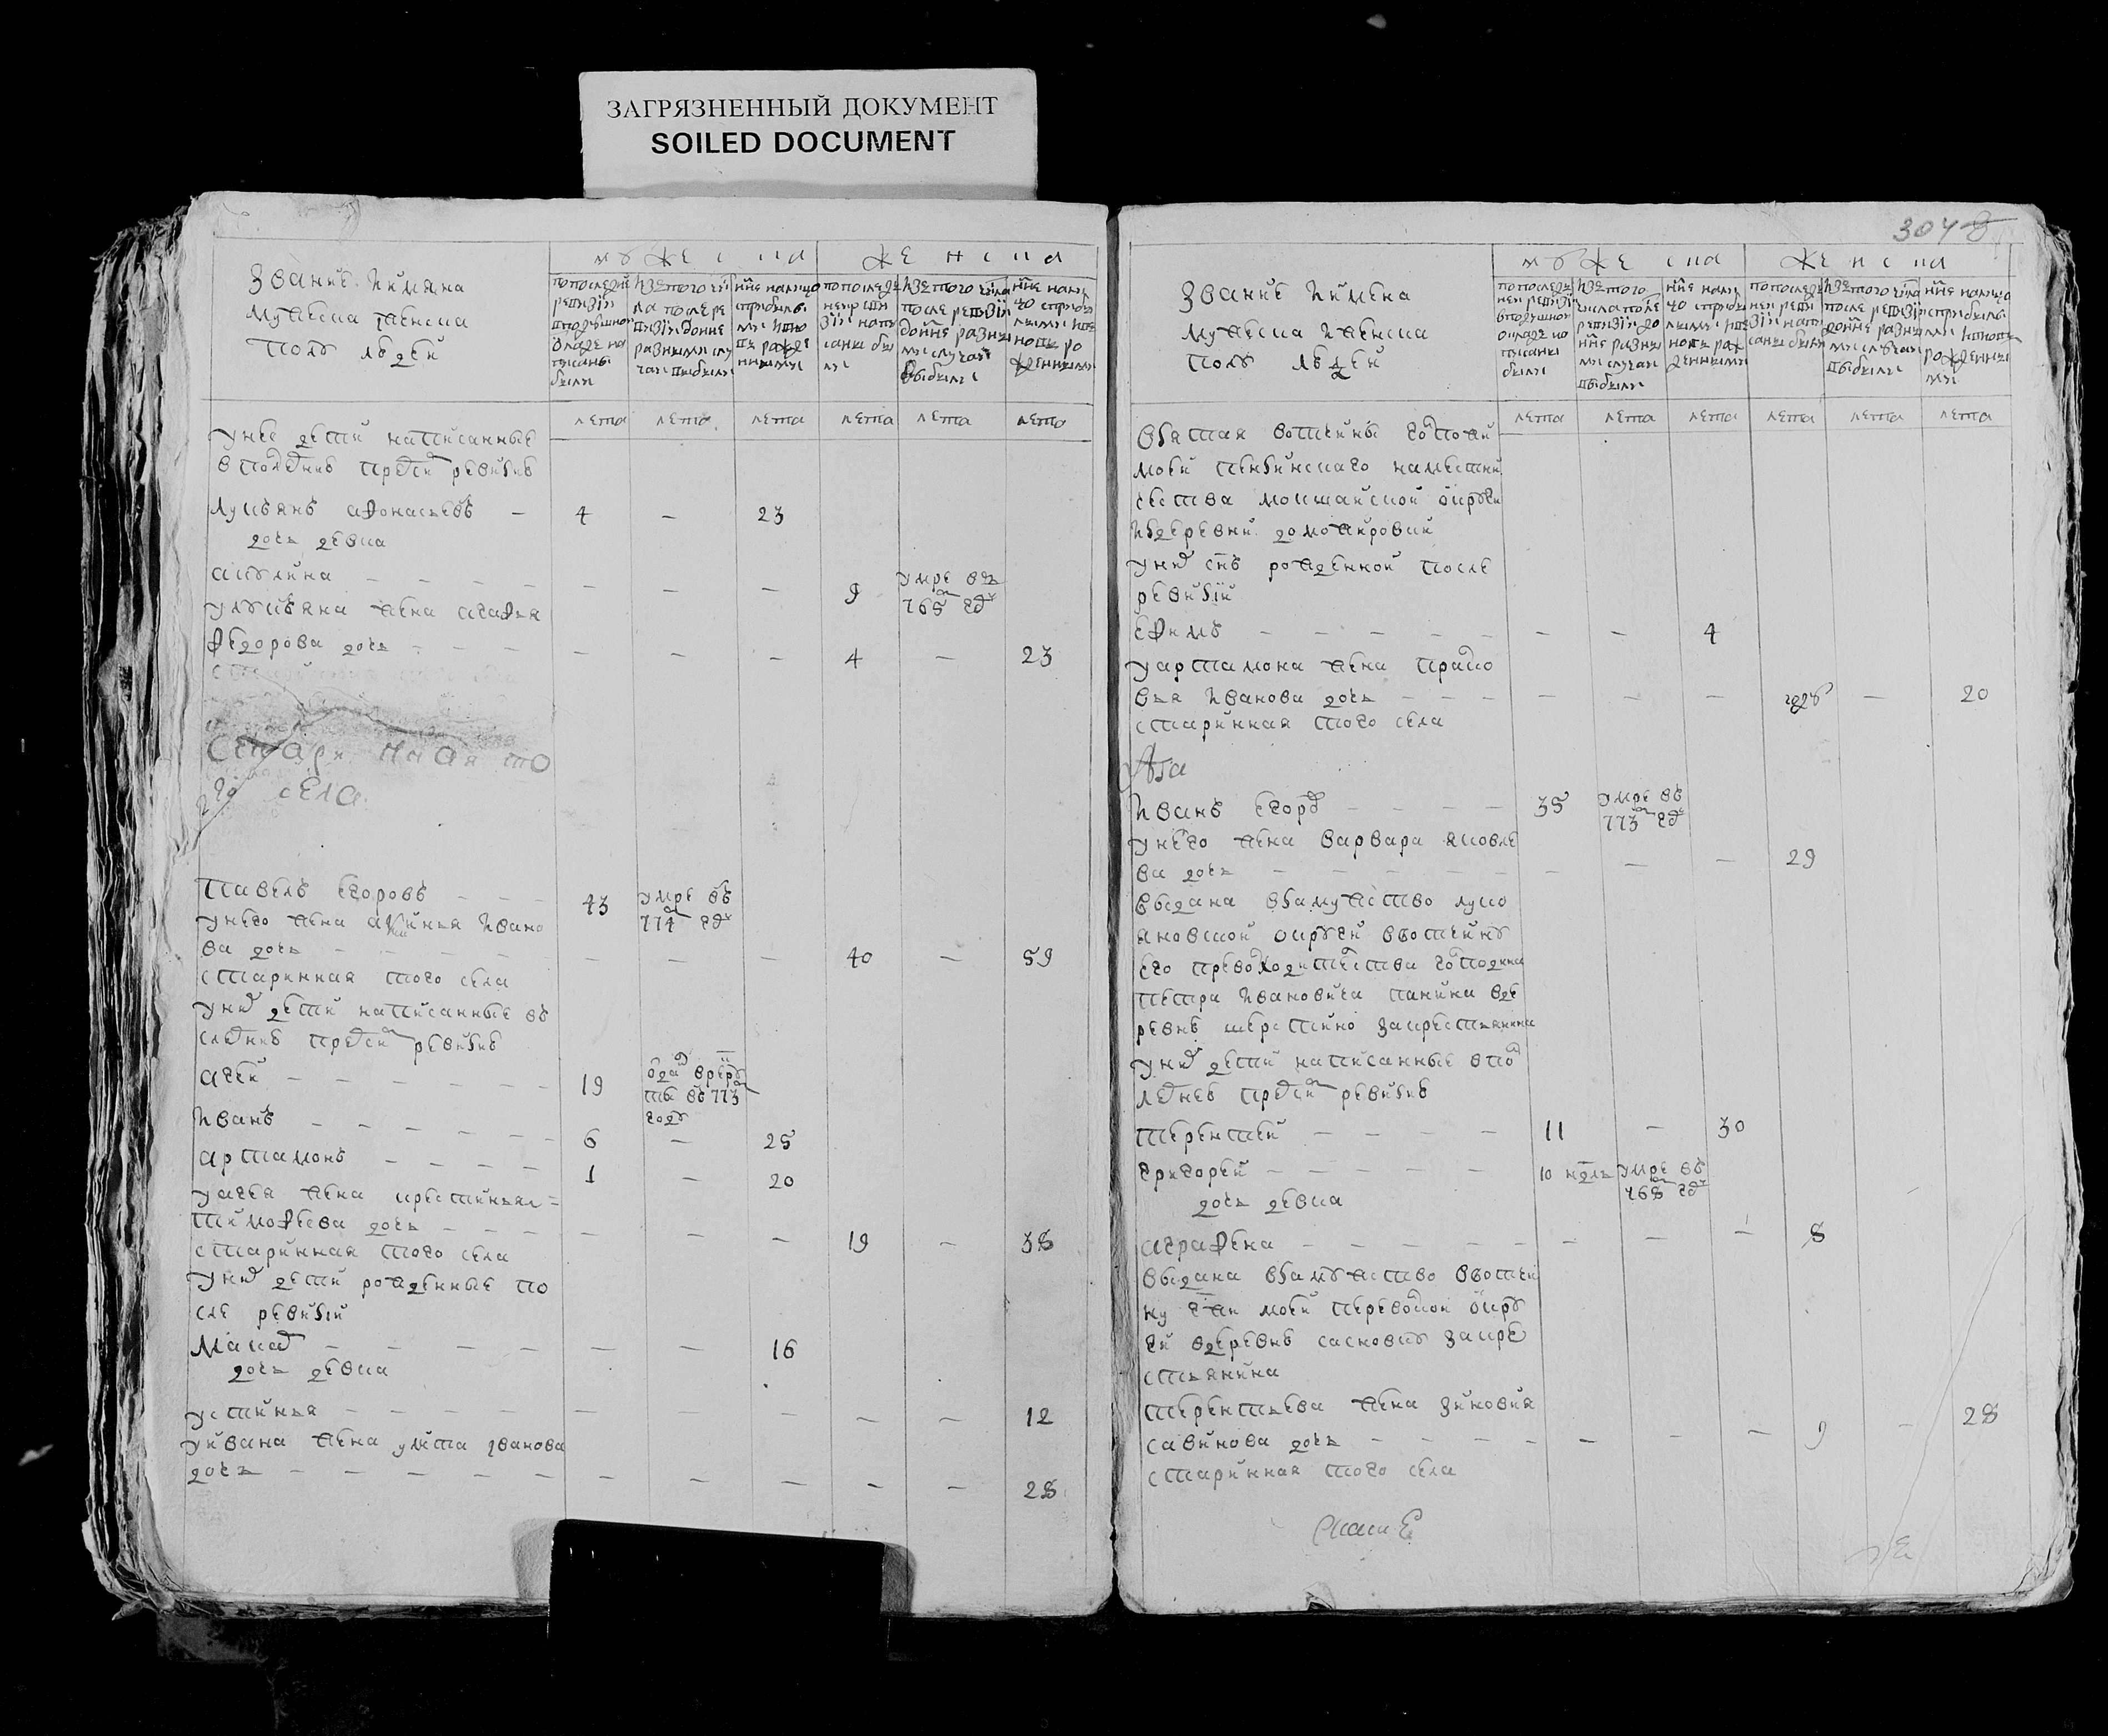 ЗАГРЯЗНЕННЫЙ ДОКУМЕНТ
SOILED DOCUMENT
звание и имяна
мужеска и женска
полу людей
мужеска
женска
по последней ревизии в подушном окладе написаны были
изъ того числа после ревизии до ныне разными случаи выбыли
ныне на лицо с прибылыми и вновь рожденными
по последней ревизии написаны были
изъ того числа после ревизии до ныне разными случаи выбыли
ныне на лицо с прибылыми и вновь рожденными
лета лета лета лета лета лета
у нее дети написанные
в последней пред сим ревизие
лукьянъ афонасьевъ – 4 – 23
дочь девка
акулина – – – – – – – 9 умре въ 765м году
у лукьяна жена агафья
федорова дочь – – – – – – 4 – 23
старинная то
го села
павелъ егоровъ – – – 43 умре въ 774м году
у него жена аксинья ивано
ва дочь – – – – – – – 40 – 59
старинная того села
у них дети написанные въ
следней пред сим ревизие
агей – – – – – – 19 отдан в рекруты въ 773м году
иванъ – – – – – – 6 – 25
артамонъ – – – – 1 – 20
у агея жена крестинья =
тимофеева дочь – – – – – – 19 – 38
старинная того села
у них дети рожденные по
сле ревизии
макар – – – – – – 16
дочь девка
устинья – – – – – – – – 12
у ивана жена улита иванова
дочь – – – – – – – – – – – 28
304
звание и имена
мужеска и женска
полу людей
мужеска
женска
по последней ревизии в подушном окладе написаны были
изъ того числа после ревизии до ныне разными случаи выбыли
ныне на лицо с прибылыми и вновь рожденными
по последней ревизии написаны были
изъ того числа после ревизии до ныне разными случаи выбыли
ныне на лицо с прибылыми и вновь рожденными
лета лета лета лета лета лета
взятая вотчины госпожи
моей пензинскаго наместни
чества мокшанской округи
из деревни
у них снъ рожденной после
ревизии
ефимъ – – – – – – – 4
у артамона жена праско
вья иванова дочь – – – – – – году – 20
старинная того села
иванъ егоров – – – – 35 умре въ 773м году
у него жена варвара яковле
ва дочь – – – – – – – – – 29
выдана в замужество луко
яновской округи в вотчину
его превосходительства господина
петра ивановича панина в де
ревню шерстино за крестьянина
у них дети написанные в пос
ледней пред сим ревизие
терентей – – – – 11 – 30
григорей – – – – – 10 недель умре въ 765м году
дочь девка
аграфена – – – – – – – – 8
выдана в замужество в вотчи
ну гжи моей перевоской окру
ги в деревню сасновку за кре
стьянина
терентьева жена зиновия
савинова дочь – – – – – – – 9 – 28
старинная того села